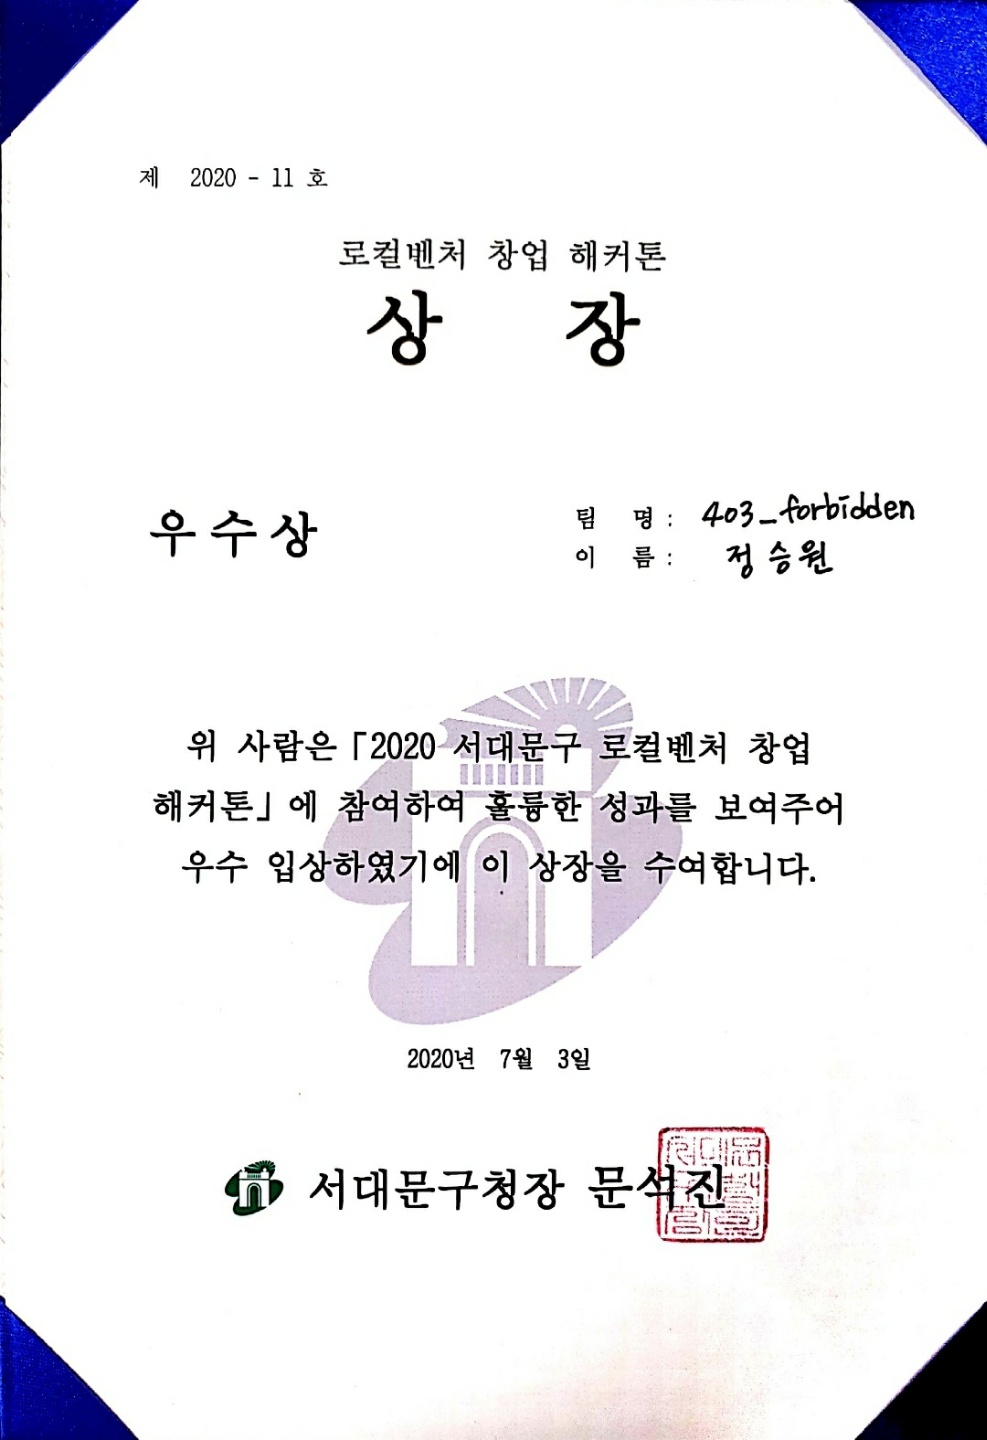 제 2020 - 11 호
로컬벤처 창업 해커톤
상 장
우수상
팀 명 : 403_forbidden
이 름 : 정승원
위 사람은 「2020 서대문구 로컬벤처 창업
해커톤」에 참여하여 훌륭한 성과를 보여주어
우수 입상하였기에 이 상장을 수여합니다.
2020년 7월 3일
서대문구청장 문석진